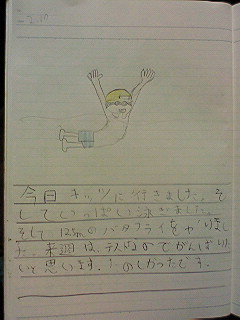 今日 キッツに行きました。そ
していっぱい泳ぎました。
そして125mのバタフライをやりまし
た。来週は、テストなのでがんばりた
いと思います。たのしかったです。